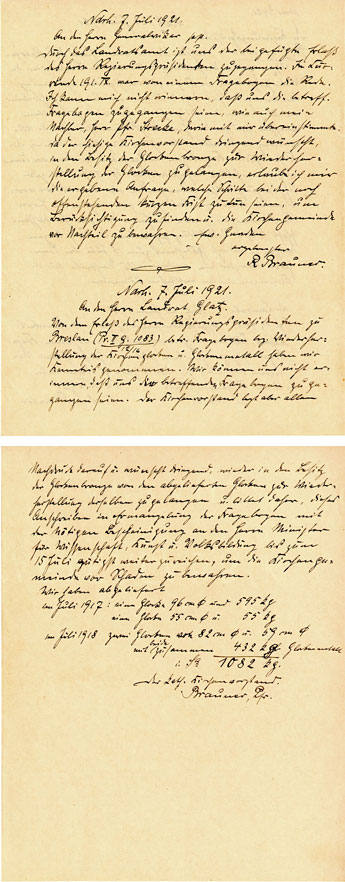 Nachr. 7. Juli 1921.
An den Herrn Generalvikar pp.
Durch das Landratsamt ist uns der beigefügte Erlaß
des Herrn Regierungspräsidenten zugegangen. In
war von einem Fragebogen die Rede.
Ich kann mich nicht erinnern, daß uns die betreff.
Fragebogen zugegangen seien, wie auch mein
Nachbar, Herr Pfr. darin mit mir übereinstimmt.
Da der hiesige Kirchenvorstand dringend wünscht,
in den Besitz der Glockenbronze zur Wiederher-
stellung der Glocken zu gelangen, erlaube ich mir
die ergebene Anfrage, welche Schritte bei der noch
offenstehenden kurzen Frist zu tun seien, um
Berücksichtigung zu finden u. die Kirchengemeinde
vor Nachteil zu bewahren. Ew. Gnaden
ergebenster
R. Brauner.
Nachr. 7. Juli 1921.
An den Herrn Landrat Glatz.
Von dem Erlaß des Herrn Regierungspräsidenten zu
Breslau (Pr. I 9. 1083) betr. Fragebogen bez. Wiederher-
stellung der Kirchenglocken u. Glockenmetall haben wir
Kenntnis genommen. Wir können uns nicht er-
innern, daß uns die betreffenden Fragebogen zuge-
gangen seien. Der Kirchenvorstand legt aber allen
Nachdruck darauf u. wünscht dringend, wieder in den Besitz
der Glockenbronze von den abgelieferten Glocken zur Wieder-
herstellung derselben zu gelangen u. bittet daher, dieses
Anschreiben in Ermangelung der Fragebogen mit
der nötigen Bescheinigung an den Herrn Minister
für Wissenschaft, Kunst u. Volksbildung bis zum
15 Juli gütigst weiterzureichen, um die Kirchenge-
meinde vor Schaden zu bewahren.
Wir haben abgeliefert
im Juli 1917: eine Glocke 96 cm Φ und 595 kg
eine Glocke 55 cm Φ u. 55 kg
im Juli 1918 zwei Glocken von 82 cm Φ u. 59 cm Φ
mit beide zusammen 432 kg Glockenmetall
i. Sa 1082 kg.
Der kath. Kirchenvorstand.
Brauner, Pfr.